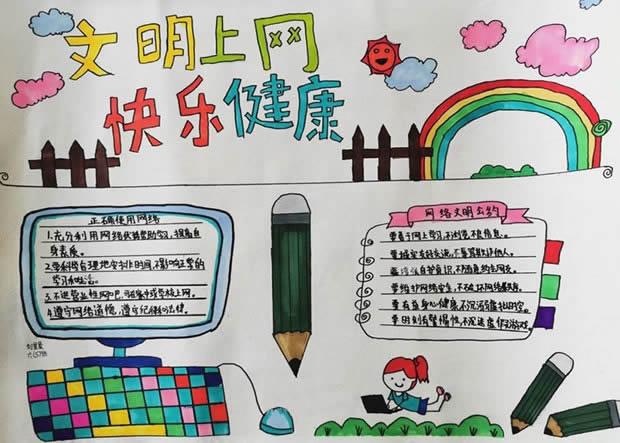 文明上网
快乐健康
正确使用网络
1.充分利用网络优势帮助学习,提高自
身素质。
2.要科学合理地安排时间,不影响正常的
学习和生活。
3.不进营业性网吧,可在家中或学校上网。
4.遵守网络道德,遵守纪律和法律。
网络文明公约
要善于网上学习,不浏览不良信息。
要诚实友好交流,不辱骂欺诈他人。
要增强自护意识,不随意约会网友。
要维护网络安全,不破坏网络秩序。
要有益身心健康,不沉溺虚拟时空。
要时刻